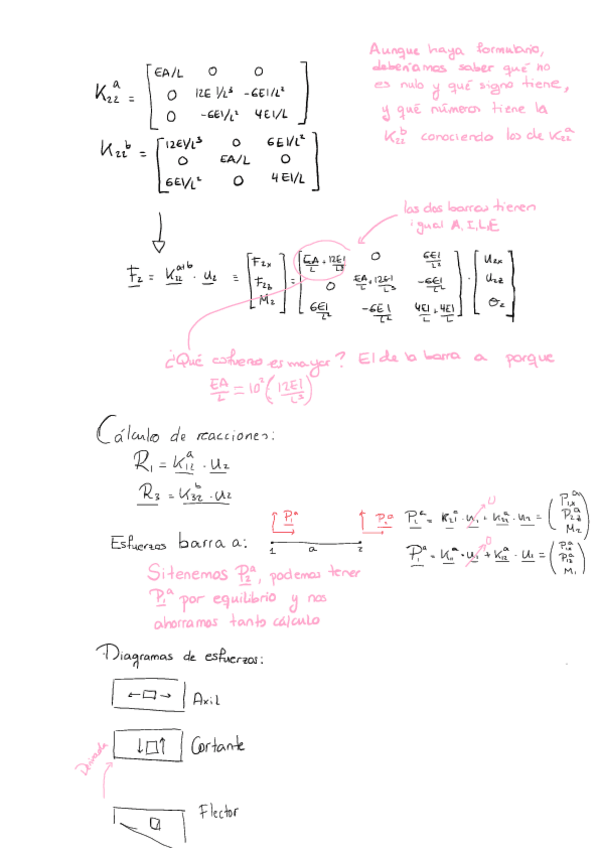 Aunque haya formulario,
deberíamos saber qué no
es nulo y qué signo tiene,
y qué números tiene la
K₂₂ᵇ conociendo los de K₂₂ᵃ
K₂₂ᵃ = [EA/L 0 0
0 12EI/L³ -6EI/L²
0 -6EI/L² 4EI/L]
K₂₂ᵇ = [12EI/L³ 0 6EI/L²
0 EA/L 0
6EI/L² 0 4EI/L]
las dos barras tienen
igual A, I, L, E
F₂ = K₂₂ᵃ⁺ᵇ · u₂ = [F₂ₓ F₂z M₂] = [EA/L + 12EI/L³ 0 6EI/L²
0 EA/L + 12EI/L³ -6EI/L²
6EI/L² -6EI/L² 4EI/L + 4EI/L] · [u₂ₓ u₂z θ₂]
¿Qué esfuerzo es mayor? El de la barra a porque
EA/L = 10²(12EI/L³)
Cálculo de reacciones:
R₁ = K₁₂ᵃ · u₂
R₃ = K₃₂ᵇ · u₂
P₁ᵃ P₂ᵃ
1 a 2
Esfuerzos barra a:
P₂ᵃ = K₂₁ᵃ · u₁ + K₂₂ᵃ · u₂ =
0
P₁ᵃ = K₁₁ᵃ · u₁ + K₁₂ᵃ · u₂ =
0
Si tenemos P₂ᵃ, podemos tener
P₁ᵃ por equilibrio y nos
ahorramos tanto cálculo
Diagramas de esfuerzos:
Axil
Cortante
Derivada
Flector